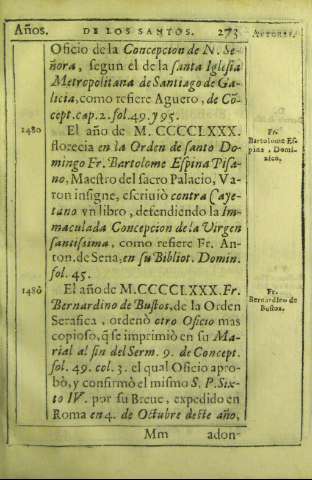 Años. DE LOS SANTOS. 273 AUTORES.
Oficio de la Concepcion de N. Se-
ñora, segun el de la santa Iglesia
Metropolitana de Santiago de Ga-
licia, como refiere Aguero, de Cõ-
cept. cap. 2. fol. 49. y 95.
1480 El año de M. CCCCLXXX.
florecia en la Orden de santo Do-
mingo Fr. Bartolome Espina Pisa-
no, Maestro del sacro Palacio, Va-
ron insigne, escriuiò contra Caye-
tano vn libro, defendiendo la Im-
maculada Concepcion de la Virgen
santissima, como refiere Fr. An-
ton. de Sena, en su Bibliot. Domin.
fol. 45.
Fr.
Bartolome Es
pina, Domi-
nico.
1480 El año de M. CCCCLXXX. Fr.
Bernardino de Bustos, de la Orden
Serafica, ordenò otro Oficio mas
copioso, q̃ se imprimiò en su Ma-
rial al fin del Serm. 9. de Concept.
fol. 49. col. 3. el qual Oficio apro-
bò, y confirmò el mismo S. P. Six-
to IV. por su Breue, expedido en
Roma en 4. de Octubre deste año,
Fr.
Bernardino de
Bustos.
Mm adon-